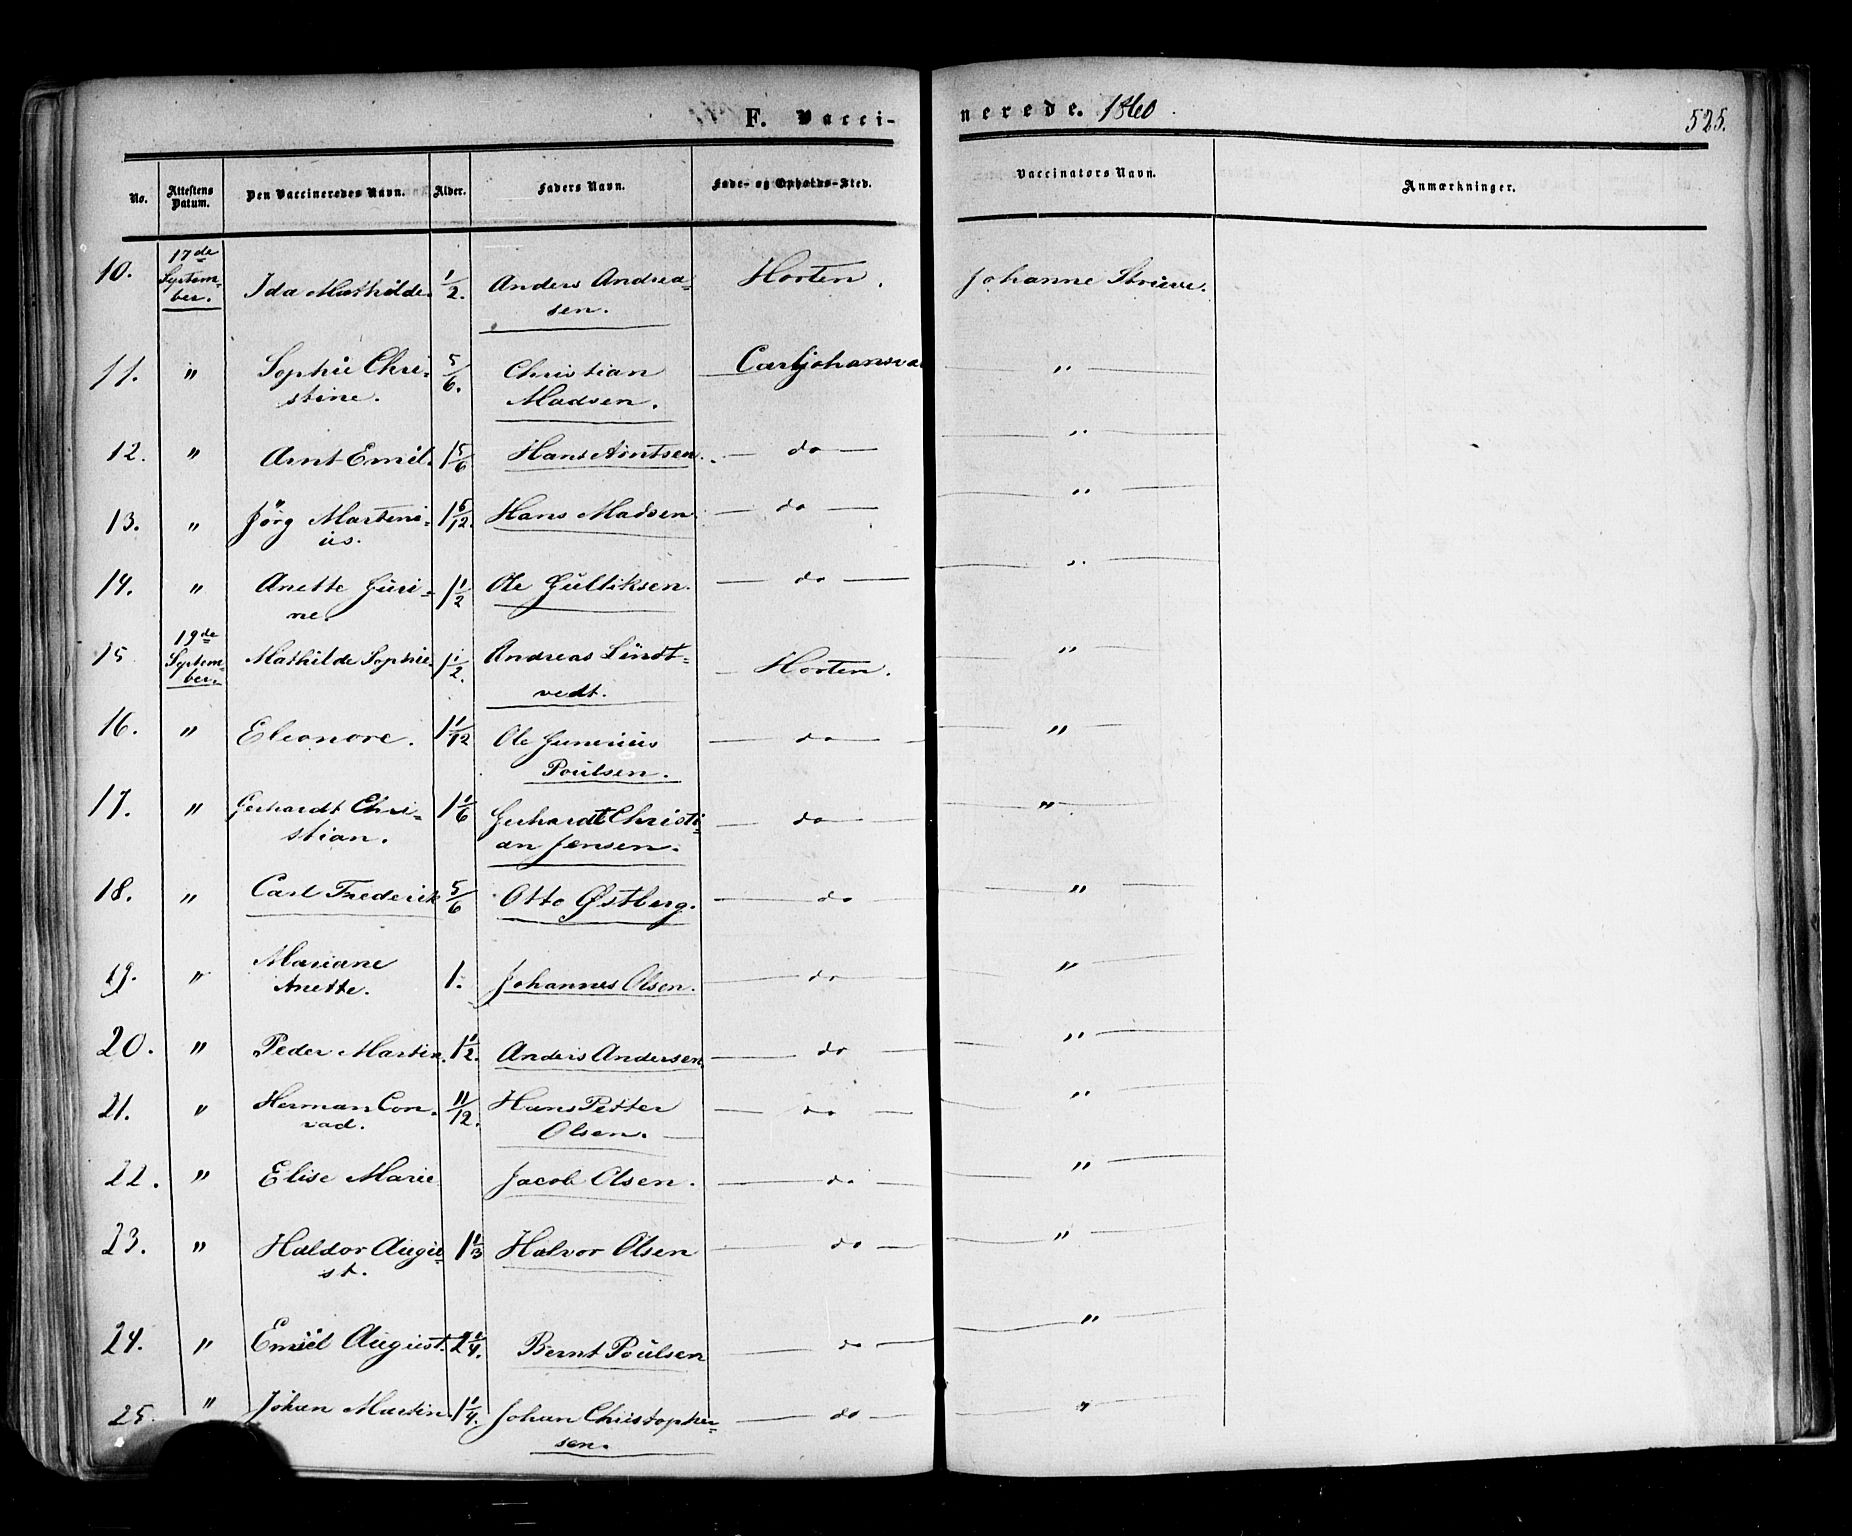 F. Vacci-
nerede. 1860.
525.
No.
Attestens Datum.
Den Vaccineredes Navn.
Alder.
Faders Navn.
Føde- og Opholds-Sted.
Vaccinators Navn.
Anmærkninger.
10. 17de Septem- Ida Mathilde 1/2. Anders Andrea- Horten. Johanne
ber. sen.
11. " Sophie Chri- 5/6. Christian Carljohansva "
stine. Madsen.
12. " Arnt Emil. 1 5/6 Hans Arntsen. — do — "
13. " Jörg Marteni- 1 5/12. Hans Madsen. — do — "
us.
14. " Anette Guri- 1 1/2 Ole Gulliksen. — do — "
ne.
15 19de Septem- Mathilde Sophie. 1 1/2. Andreas Lindt- — Horten. "
ber. vedt.
16. " Eleonore. 1 1/12 Ole — do — "
Poulsen.
17. " Gerhardt Chri- 1 1/6 Gerhardt Christi- — do — "
stian. an Jensen.
18. " Carl Frederik 5/6 Otto Østberg. — do — "
19. " Mariane 1. Johannes Olsen. — do — "
Anette.
20. " Peder Martin. 1 1/2. Anders Andersen — do — "
21. " Herman Con- 11/12. Hans Petter — do — "
rad. Olsen. —
22. " Elise Marie Jacob Olsen. — do — "
23. " Haldor Augu- 1 1/3 Halvor Olsen — do — "
st.
24. " Emiel August. 2 1/4. Bernt Poulsen — do — "
25. " Johan Martin. 1 1/4. Johan Christopher- — do — "
sen.